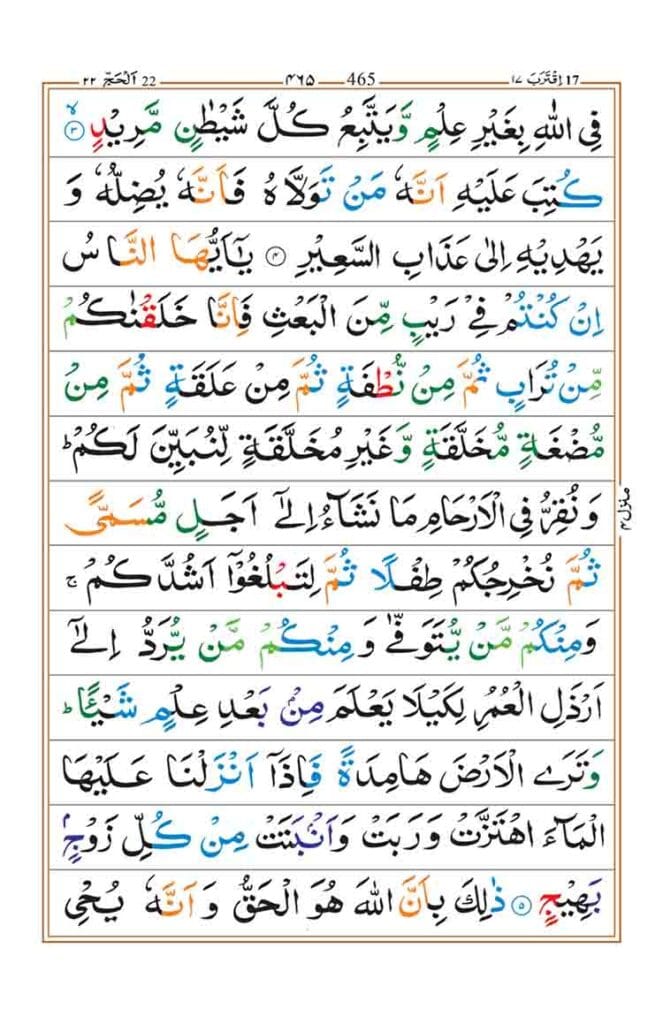 اِقْتَرَبَ ١٧ 17 465 ٤٦٥ اَلْحَجّ ٢٢ 22
فِی اللّٰهِ بِغَیْرِ عِلْمٍ وَّیَتَّبِعُ كُلَّ شَیْطٰنٍ مَّرِیْدٍ ۙ‏﴿۳﴾
كُتِبَ عَلَیْهِ اَنَّهٗ مَنْ تَوَلَّاهُ فَاَنَّهٗ یُضِلُّهٗ وَ
یَهْدِیْهِ اِلٰی عَذَابِ السَّعِیْرِ ﴿۴﴾ یٰۤاَیُّهَا النَّاسُ
اِنْ كُنْتُمْ فِیْ رَیْبٍ مِّنَ الْبَعْثِ فَاِنَّا خَلَقْنٰكُمْ
مِّنْ تُرَابٍ ثُمَّ مِنْ نُّطْفَةٍ ثُمَّ مِنْ عَلَقَةٍ ثُمَّ مِنْ
مُّضْغَةٍ مُّخَلَّقَةٍ وَّغَیْرِ مُخَلَّقَةٍ لِّنُبَیِّنَ لَكُمْ ؕ
وَ نُقِرُّ فِی الْاَرْحَامِ مَا نَشَآءُ اِلٰۤی اَجَلٍ مُّسَمًّی
ثُمَّ نُخْرِجُكُمْ طِفْلًا ثُمَّ لِتَبْلُغُوْۤا اَشُدَّكُمْ ۚ
وَمِنْكُمْ مَّنْ یُّتَوَفّٰی وَمِنْكُمْ مَّنْ یُّرَدُّ اِلٰۤی
اَرْذَلِ الْعُمُرِ لِكَیْلَا یَعْلَمَ مِنْۢ بَعْدِ عِلْمٍ شَیْـًٔا ؕ
وَتَرَی الْاَرْضَ هَامِدَةً فَاِذَاۤ اَنْزَلْنَا عَلَیْهَا
الْمَآءَ اهْتَزَّتْ وَرَبَتْ وَاَنْۢبَتَتْ مِنْ كُلِّ زَوْجٍۭ
بَهِیْجٍ ﴿۵﴾ ذٰلِكَ بِاَنَّ اللّٰهَ هُوَ الْحَقُّ وَ اَنَّهٗ یُحْیِ
منزل ۴